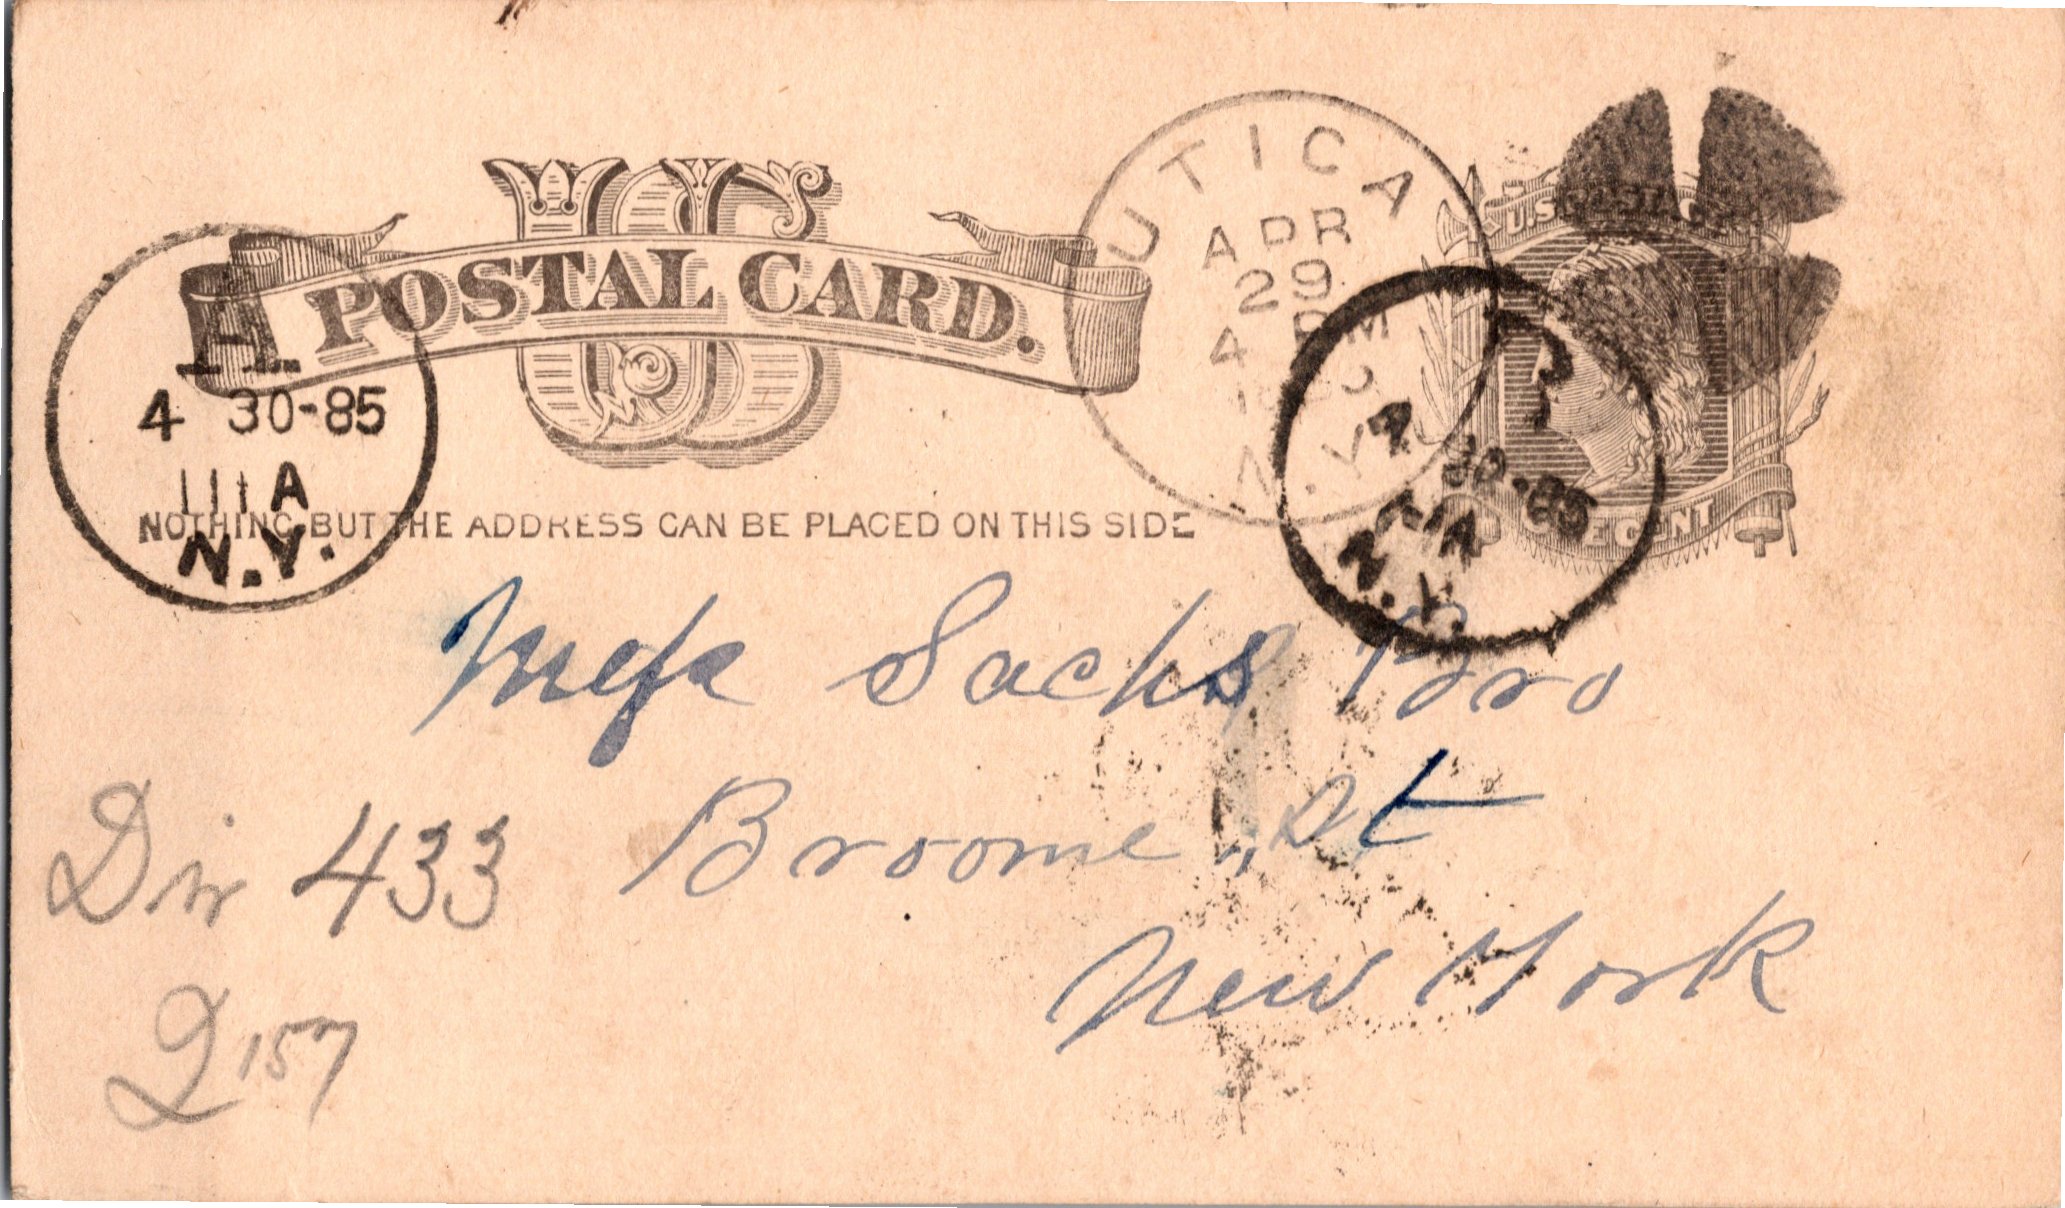 US
POSTAL CARD.
NOTHING BUT THE ADDRESS CAN BE PLACED ON THIS SIDE
U.S. POSTAGE
ONE CENT
UTICA
APR
29
4 PM
N.Y.
H
4 30-85
11 A
N.Y.
4 30-85
N.Y.
Messrs Sachs Bro
Broome St
New York
Div 433
2157